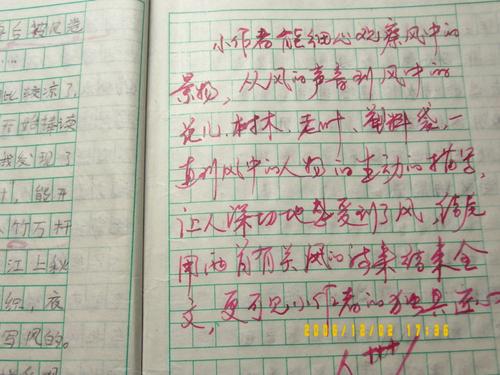 后被风造
比凉了,
开始接读
我发现了
,能开
竹万杆
江上秋
织,夜
写风的。
小作者能细心观察风中的
景物,从风的声音到风中的
花儿、树木、老叶、塑料袋,一
直到风中的人物的生动的描写,
让人深切地感受到了风,结尾
用两首有关风的诗来结束全
文,更可见小作者的独具匠心
2008/12/02 17:36